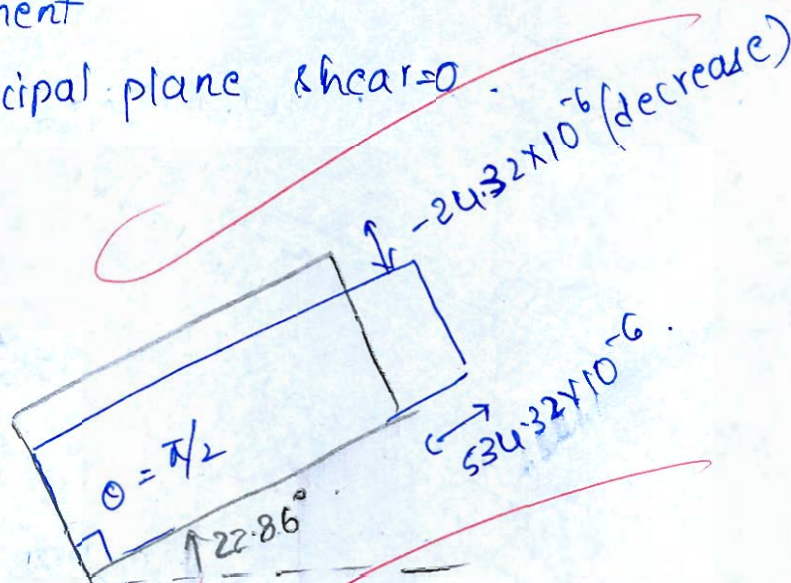 nent
cipal plane shear=0.
-24.32×10⁻⁶ (decrease)
534.32×10⁻⁶.
θ = π/2
22.86°